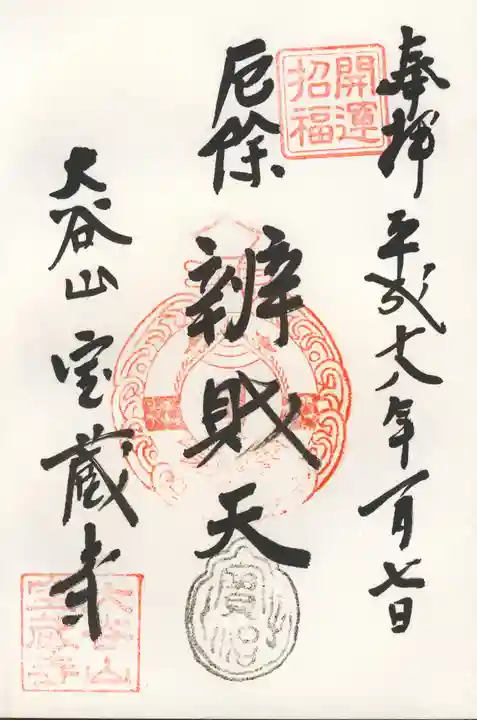 奉拝 平成十八年一月七日
開運
招福
厄除 辨財天
大谷山 宝蔵寺
大谷山
宝蔵寺